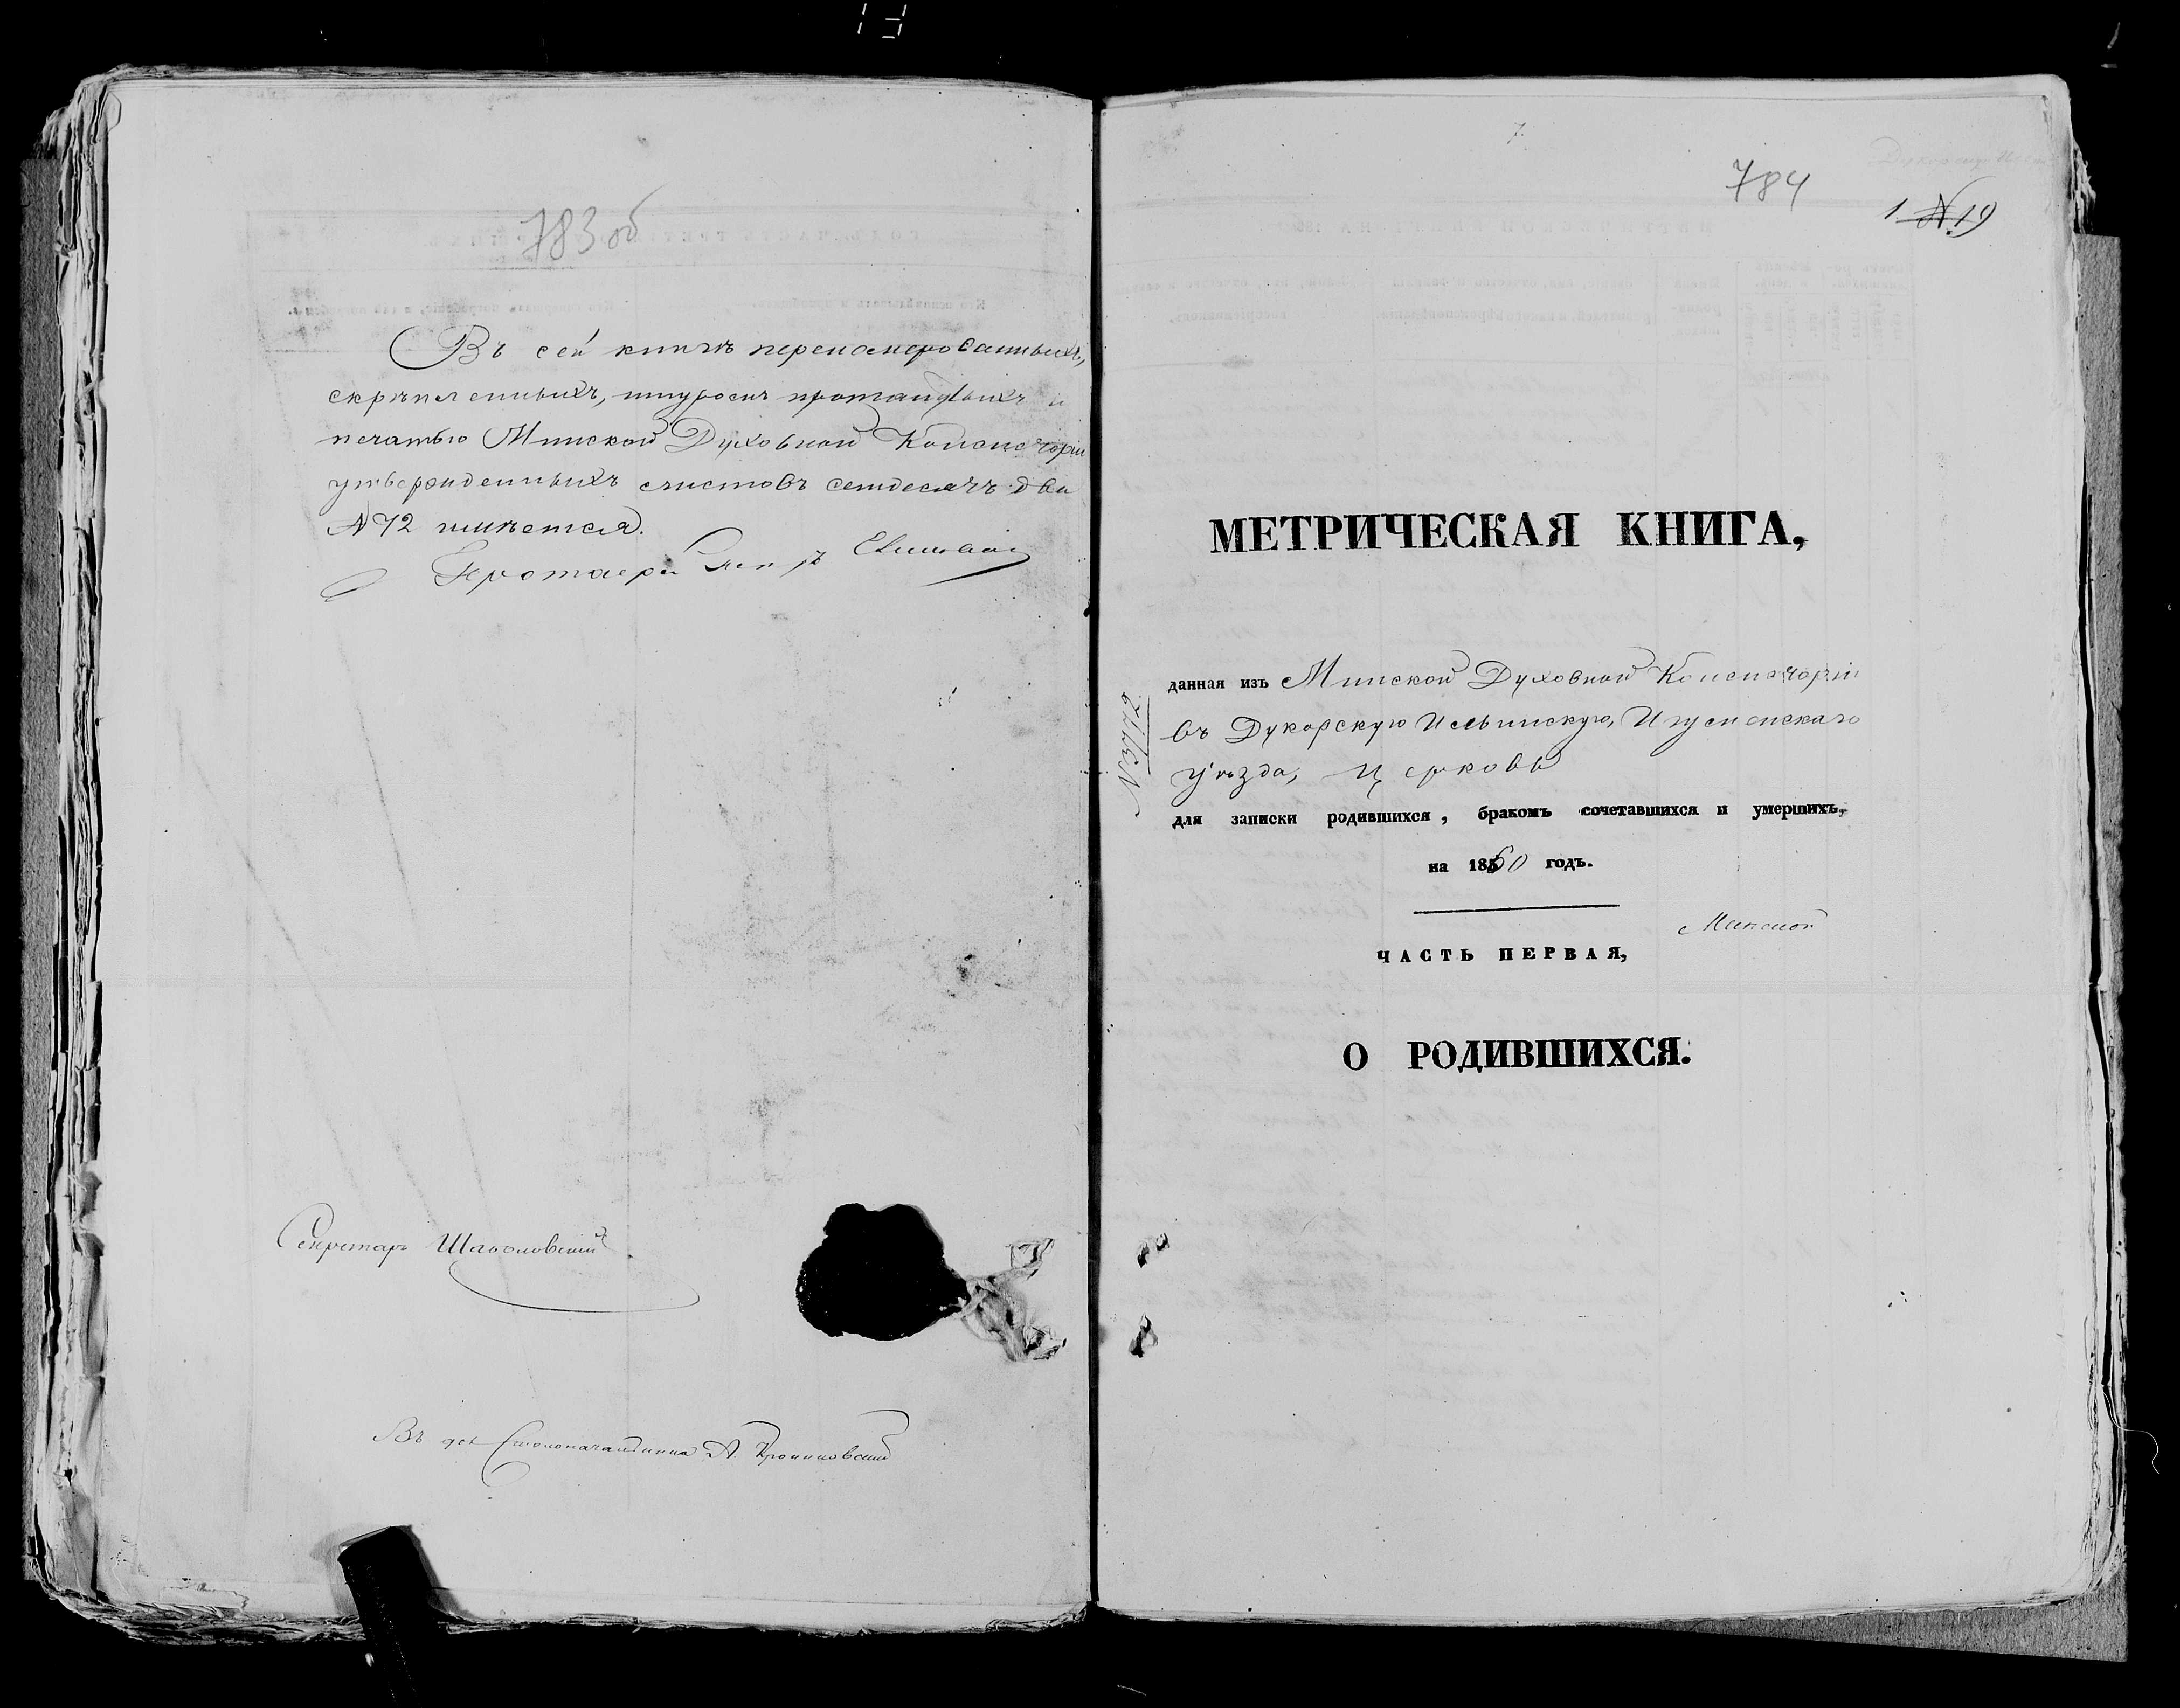 783 об
Въ сей книгѣ перенумерованныхъ,
скрѣпленныхъ, шнуромъ и
печатью Минской Духовной Консисторіи
утвержденныхъ листовъ семдесятъ два
№ 72 имѣется.
Протоіерей
Секретарь
Въ дол. Столоначальника А.
784
1 № 19
МЕТРИЧЕСКАЯ КНИГА,
данная изъ Минской Духовной Консисторіи
въ Дукорскую Ильинскую, Игуменскаго
уѣзда, церковь
для записки родившихся, бракомъ сочетавшихся и умершихъ,
на 1860 годъ.
Минской
ЧАСТЬ ПЕРВАЯ,
О РОДИВШИХСЯ.